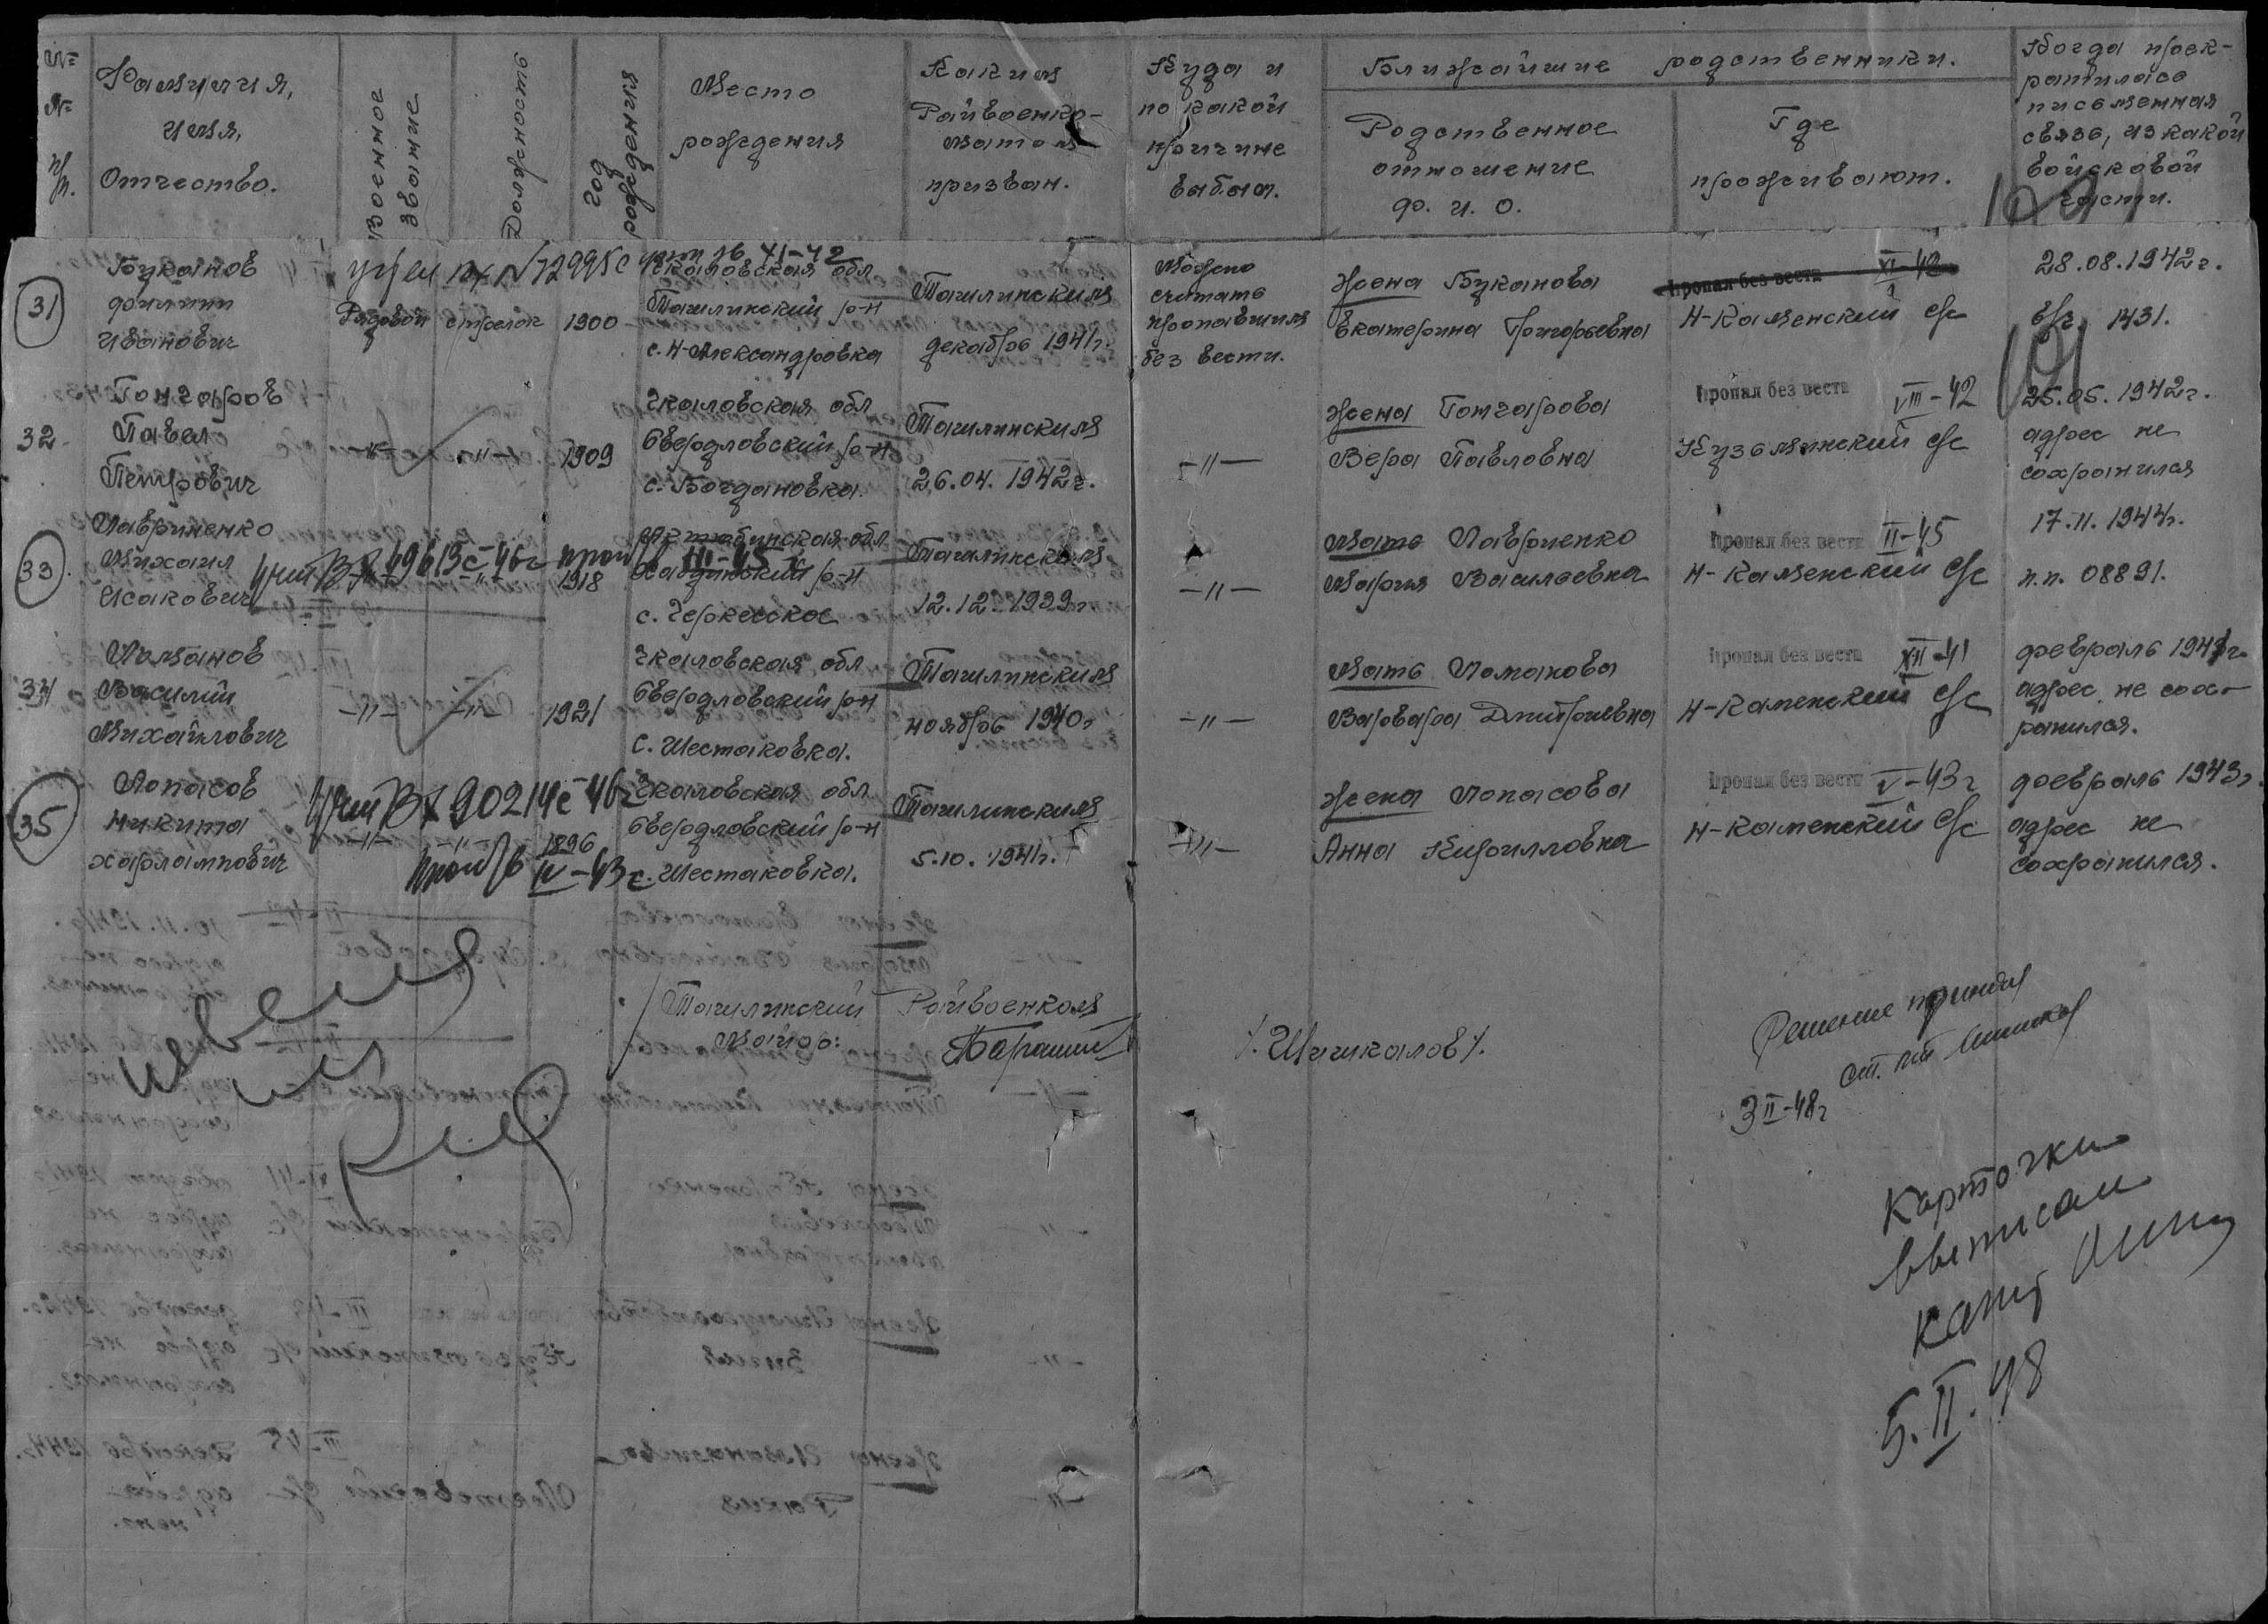 № № п/п.
Фамилия, имя, Отчество.
Военное звание
Должность
год рождения
Место рождения
Каким Райвоенко-матом призван.
Куда и по какой причине выбыл.
Ближайшие родственники.
Родственное отношение ф. и. о.
Где проживают.
Когда прек-ратилась письменная связь, из какой войсковой части.
31
Буканов
Филипп
Иванович
Рядовой
стрелок
1900
Чкаловская обл
Ташлинский р-н
с. Н-Александровка
Ташлинским
декабрь 1941г.
Можно
считать
пропавшим
без вести.
жена Буканова
Екатерина Григорьевна
Пропал без вести XI-42
Н-Каменский с/с
28.08.1942г.
в/ч 1431.
32
Гончаров
Павел
Петрович
-"-
-"-
1909
Чкаловская обл
Свердловский р-н
с. Богдановка.
Ташлинским
26.04.1942г.
-"-
жена Гончарова
Вера Павловна
Пропал без вести VIII-42
Кузьминский с/с
25.05.1942г.
адрес не
сохранился
33.
Лавриненко
Михаил
Исакович
49613с-46г
III-45г
-"-
1918
Актюбинская обл
р-н
с. Черкесское
Ташлинским
12.12.1939г
-"-
мать Лавриенко
Мария Васильевна
Пропал без вести II-45
Н-Каменский с/с
17.11.1944г.
п.п. 08891.
34
Лиманов
Василий
Михайлович
-"-
-"-
1921
Чкаловская обл
Свердловский р-н
с. Шестаковка.
Ташлинским
ноябрь 1940г
-"-
матьЛомакова
Варвара Дмитриевна
Пропал без вести XII-41
Н-Каменский с/с
февраль 1941г
адрес не сох-
ранился.
35
Лопасов
Никита
Харлампович
90214с-46г
-"-
-"-
1896
IV-43г
Чкаловская обл
Свердловский р-н
с. Шестаковка.
Ташлинским
5.10.1941г.
-"-
жена Лопасова
Анна Кирилловна
Пропал без вести V-43г
Н-Каменский с/с
февраль 1943г.
адрес не
сохранился.
Ташлинский Райвоенком
Майор:
/. Шишкалов /.
Решение принял
ст. лт
3 II-48г
Карточки
выписал
5.II.48